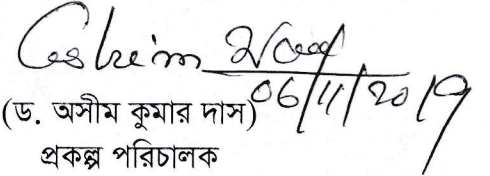 06/11/2019
(ড. অসীম কুমার দাস)
প্রকল্প পরিচালক